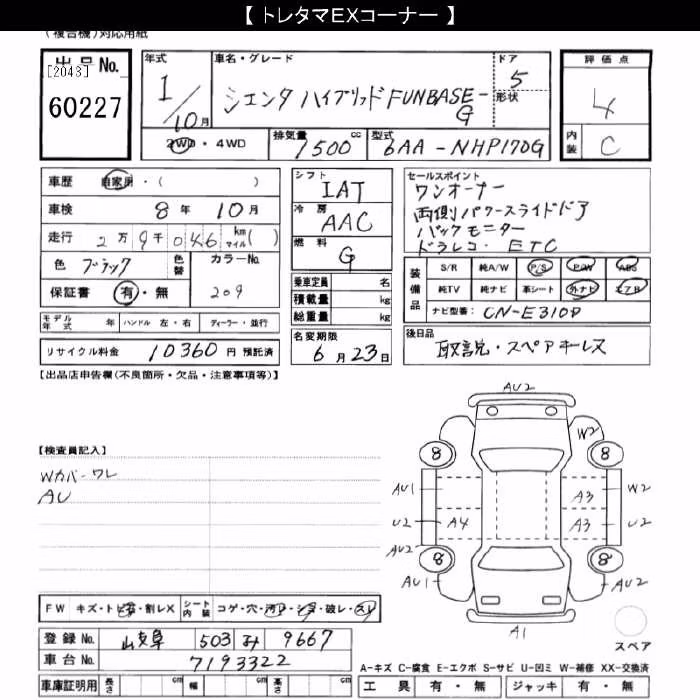 【 トレタマEXコーナー 】
(複合機)対応用紙
出品No.
[2043]
60227
年式
1/10月
車名・グレード
シエンタ ハイブリッド FUNBASE-G
ドア
5
形状
評価点
4
内装
C
2WD・4WD
排気量
1500 cc
型式
6AA-NHP170G
車歴 自家用・( )
車検 8年 10月
走行 2万9千046 km マイル( )
色 ブラック
色替
カラーNo.
209
保証書 有・無
モデル年式 年 ハンドル 左・右 ディーラー・並行
リサイクル料金 10360 円 預託済
シフト
IAT
冷房
AAC
燃料
G
乗車定員 名
積載量 kg
総重量 kg
名変期限
6月23日
セールスポイント
ワンオーナー
両側パワースライドドア
バックモニター
ドラレコ・ETC
装備品
S/R 純A/W P/S P/W ABS
純TV 純ナビ 革シート 外ナビ エアB
ナビ型番: CN-E310D
後日品
取説・スペアキーレス
【出品店申告欄(不良箇所・欠品・注意事項等)】
【検査員記入】
Wカバーワレ
AU
AU2
W2
8
8
AU1
A3
W2
U2
A4
A3
U2
AU2
8
8
AU1
AU2
A1
スペア
FW キズ・トビ石・割レX
シート内装
コゲ・穴・汚レ・シミ・破レ・スレ
登録No. 岐阜 503 み 9667
車台No. 7193322
車庫証明用 長さ cm 幅 cm 高さ cm
A-キズ C-腐食 E-エクボ S-サビ U-凹ミ W-補修 XX-交換済
工具 有・無 ジャッキ 有・無